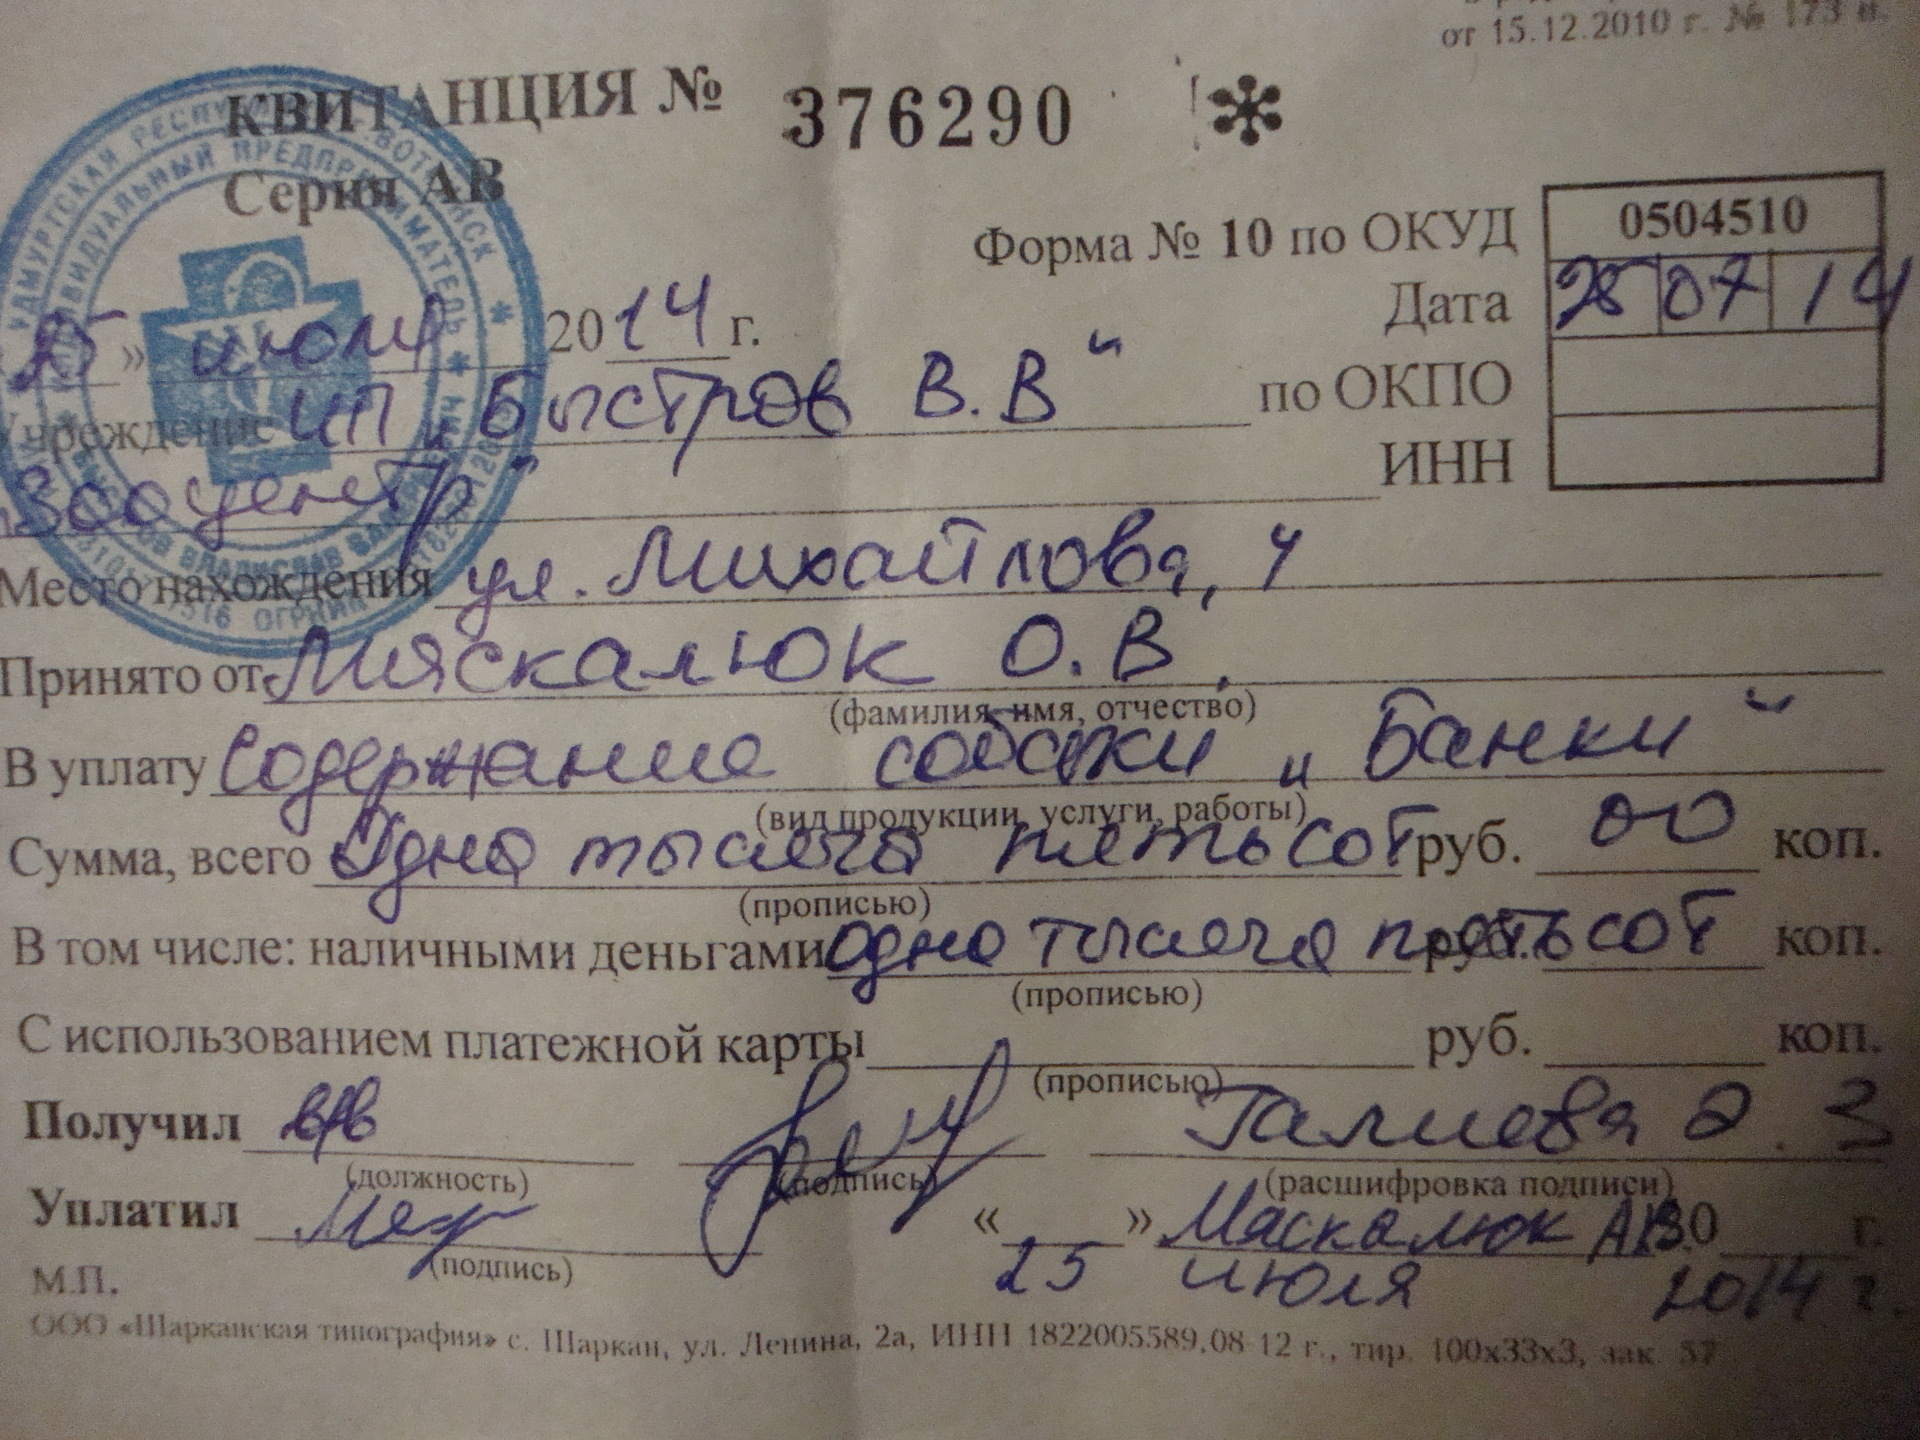 от 15.12.2010 г. № 173 н.
КВИТАНЦИЯ № 376290 *
Серия АВ
Форма № 10 по ОКУД 0504510
25 » июля 2014 г. Дата 25 07 14
Учреждение ИП „Быстров В.В“ по ОКПО
„Зооцентр“ ИНН
Место нахождения ул. Михайлова, 4
Принято от Мяскалюк О.В.
(фамилия, имя, отчество)
В уплату Содержание собаки „Банки“
(вид продукции, услуги, работы)
Сумма, всего Одна тысяча пятьсот руб. 00 коп.
(прописью)
В том числе: наличными деньгами одна тысяча пятьсот руб. коп.
(прописью)
С использованием платежной карты руб. коп.
(прописью)
Получил в/в Галиева Э.З
(должность) (подпись) (расшифровка подписи)
Уплатил « » Мяскалюк 20 г.
(подпись) 25 июля 2014 г.
М.П.
ООО «Шарканская типография» с. Шаркан, ул. Ленина, 2а, ИНН 1822005589,08-12 г., тир. 100х33х3, зак. 57
УДМУРТСКАЯ РЕСПУБЛИКА ВОТКИНСК
ИНДИВИДУАЛЬНЫЙ ПРЕДПРИНИМАТЕЛЬ
БЫСТРОВ ВЛАДИСЛАВ
ОГРНИП